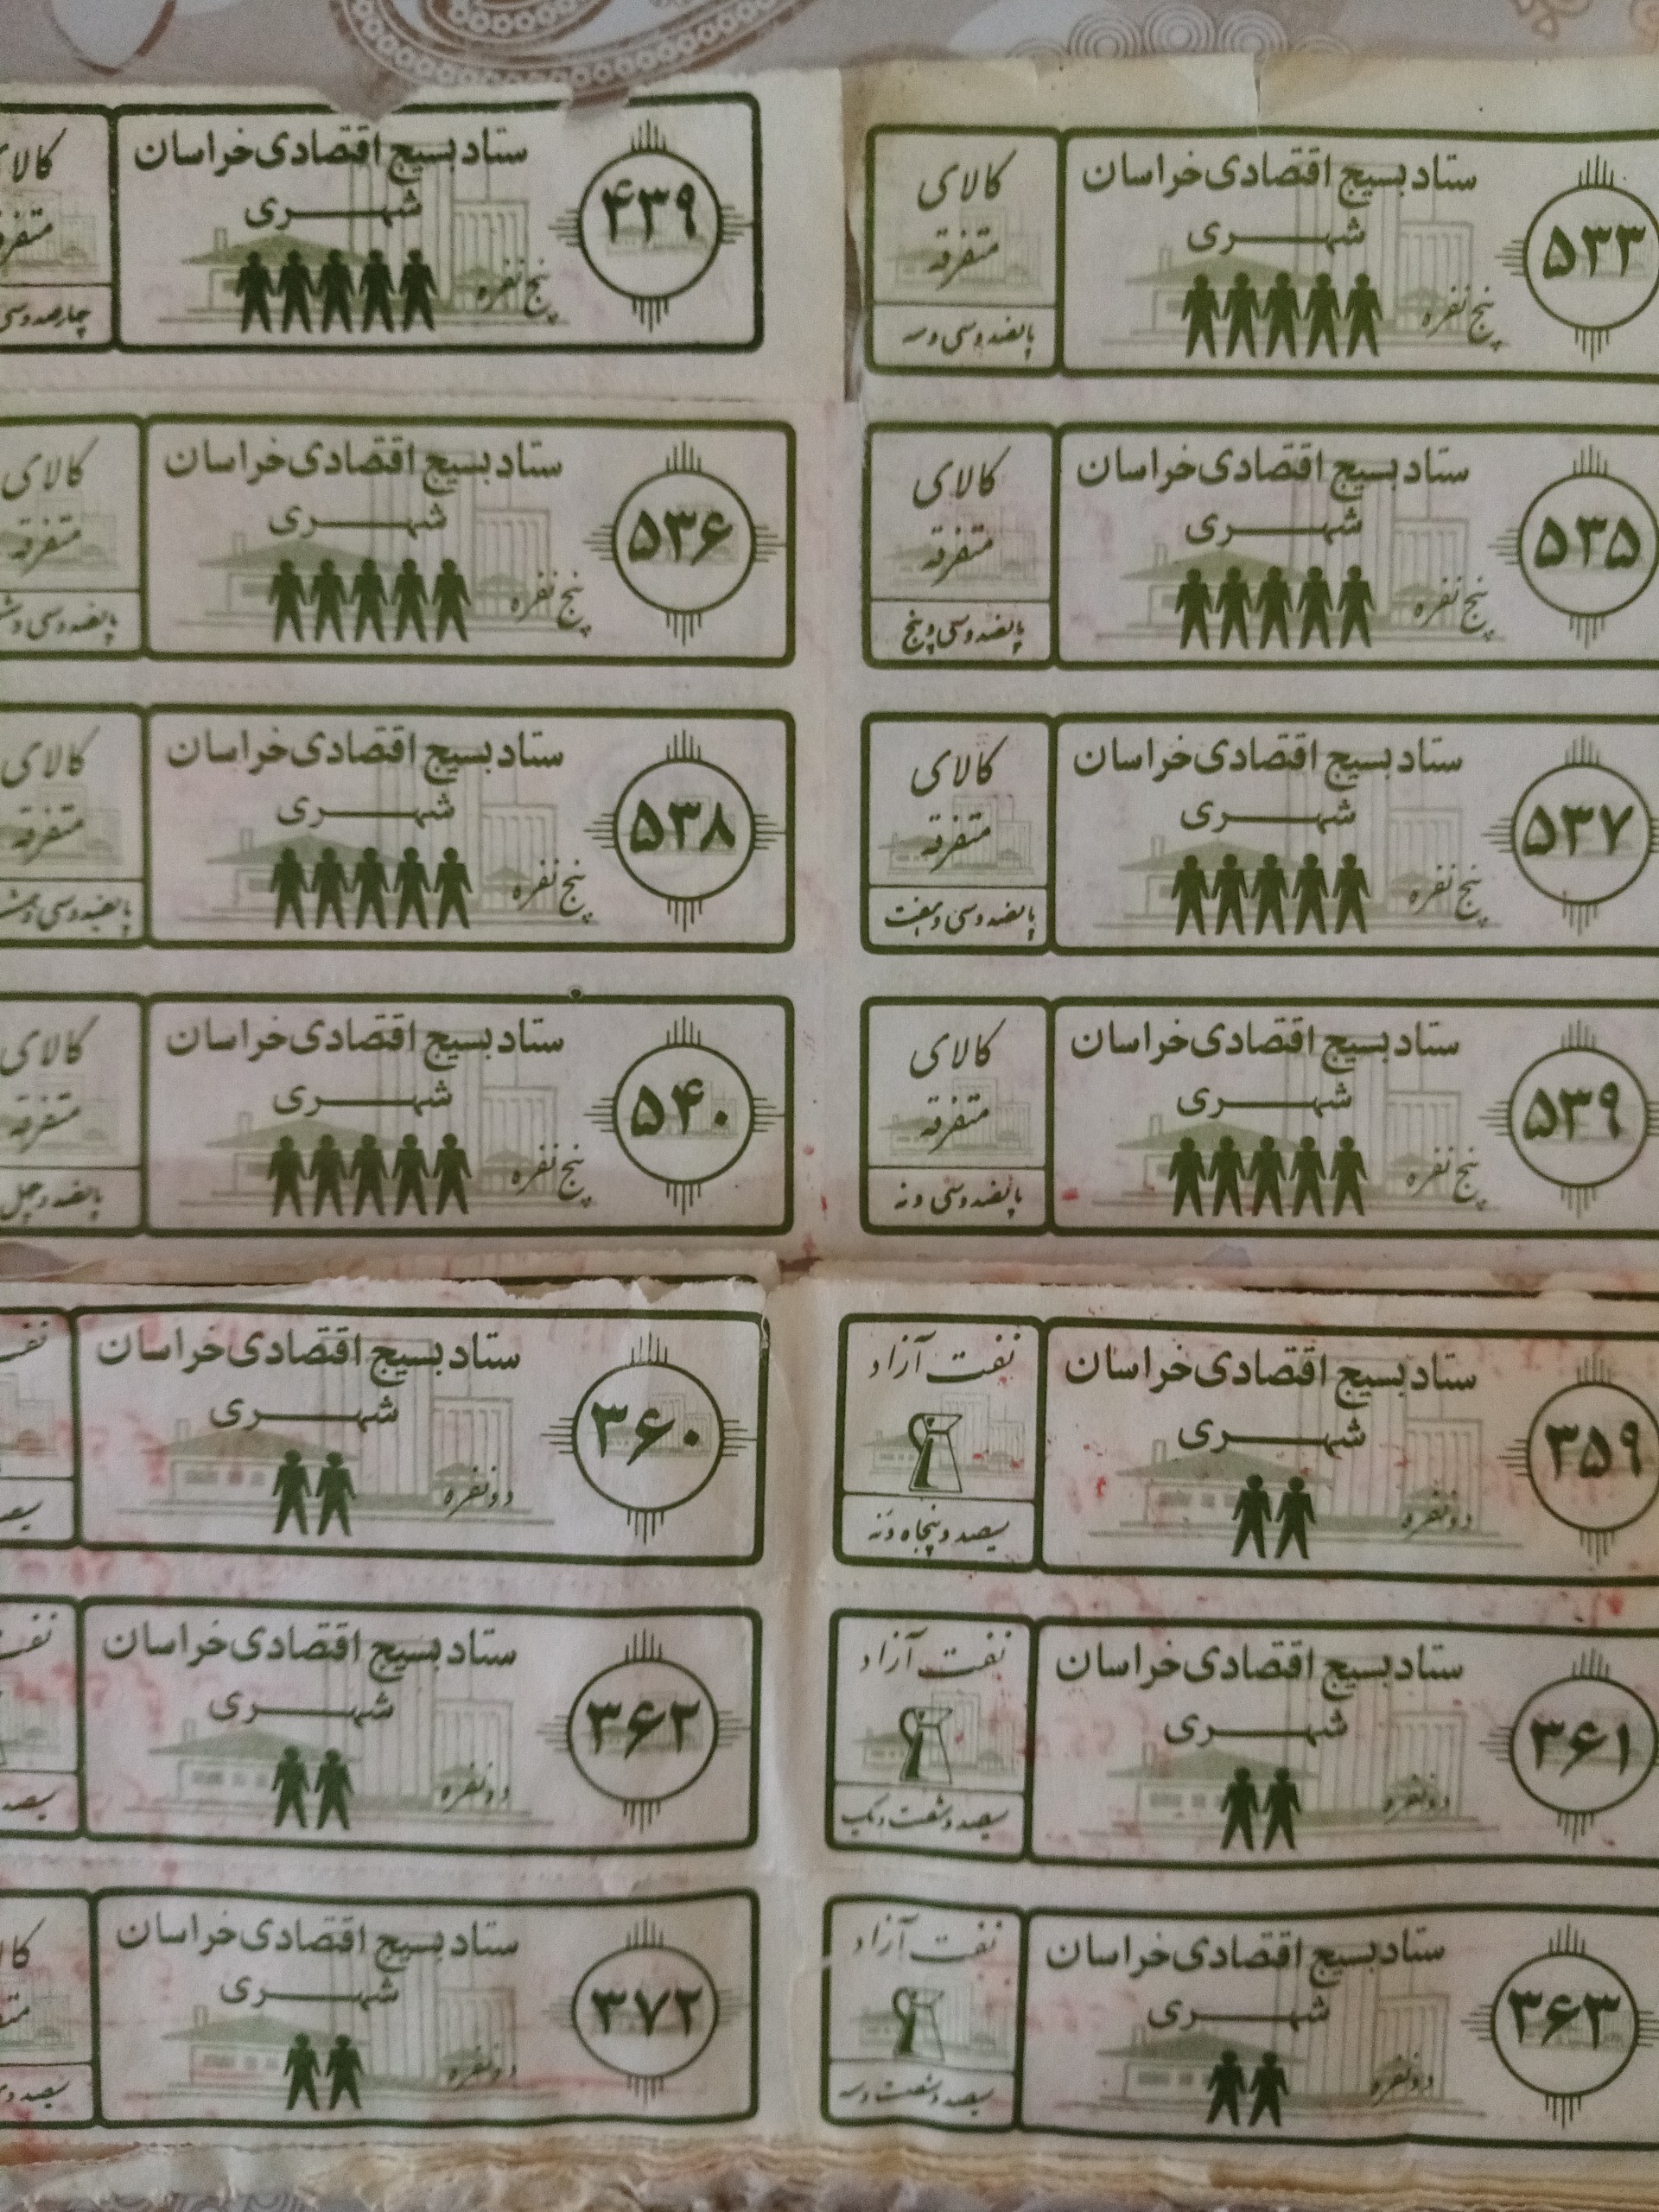 ستاد بسیج اقتصادی خراسان
شهری
پنج نفره
۵۳۳
کالای
متفرقه
پانصد و سی و سه
ستاد بسیج اقتصادی خراسان
شهری
پنج نفره
۴۳۹
کالای
متفرقه
چهارصد و سی
ستاد بسیج اقتصادی خراسان
شهری
پنج نفره
۵۳۵
کالای
متفرقه
پانصد و سی و پنج
ستاد بسیج اقتصادی خراسان
شهری
پنج نفره
۵۳۶
کالای
متفرقه
پانصد و سی
ستاد بسیج اقتصادی خراسان
شهری
پنج نفره
۵۳۷
کالای
متفرقه
پانصد و سی و هفت
ستاد بسیج اقتصادی خراسان
شهری
پنج نفره
۵۳۸
کالای
متفرقه
پانصد و سی
ستاد بسیج اقتصادی خراسان
شهری
پنج نفره
۵۳۹
کالای
متفرقه
پانصد و سی و نه
ستاد بسیج اقتصادی خراسان
شهری
پنج نفره
۵۴۰
کالای
متفرقه
پانصد و چهل
ستاد بسیج اقتصادی خراسان
شهری
دو نفره
۳۵۹
نفت آزاد
سیصد و پنجاه و نه
ستاد بسیج اقتصادی خراسان
شهری
دو نفره
۳۶۰
ستاد بسیج اقتصادی خراسان
شهری
دو نفره
۳۶۱
نفت آزاد
سیصد و شصت و یک
ستاد بسیج اقتصادی خراسان
شهری
دو نفره
۳۶۲
سیصد
ستاد بسیج اقتصادی خراسان
شهری
دو نفره
۳۶۳
نفت آزاد
سیصد و شصت و سه
ستاد بسیج اقتصادی خراسان
شهری
دو نفره
۳۷۲
سیصد و